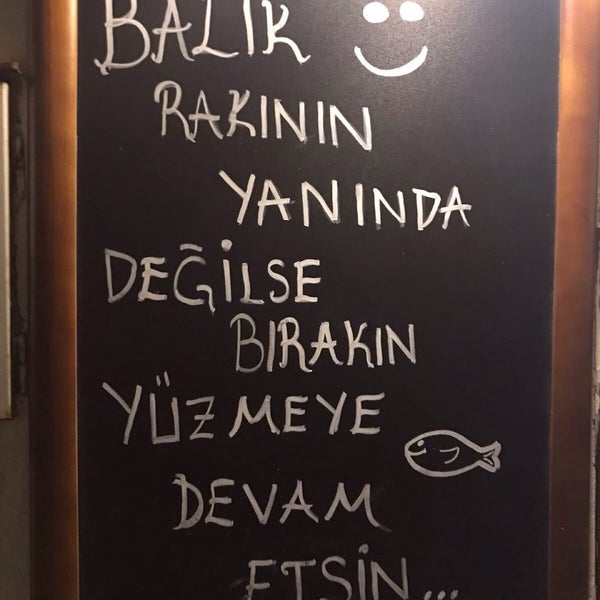 BALIK
RAKININ
YANINDA
DEĞİLSE
BIRAKIN
YÜZMEYE
DEVAM
ETSİN...